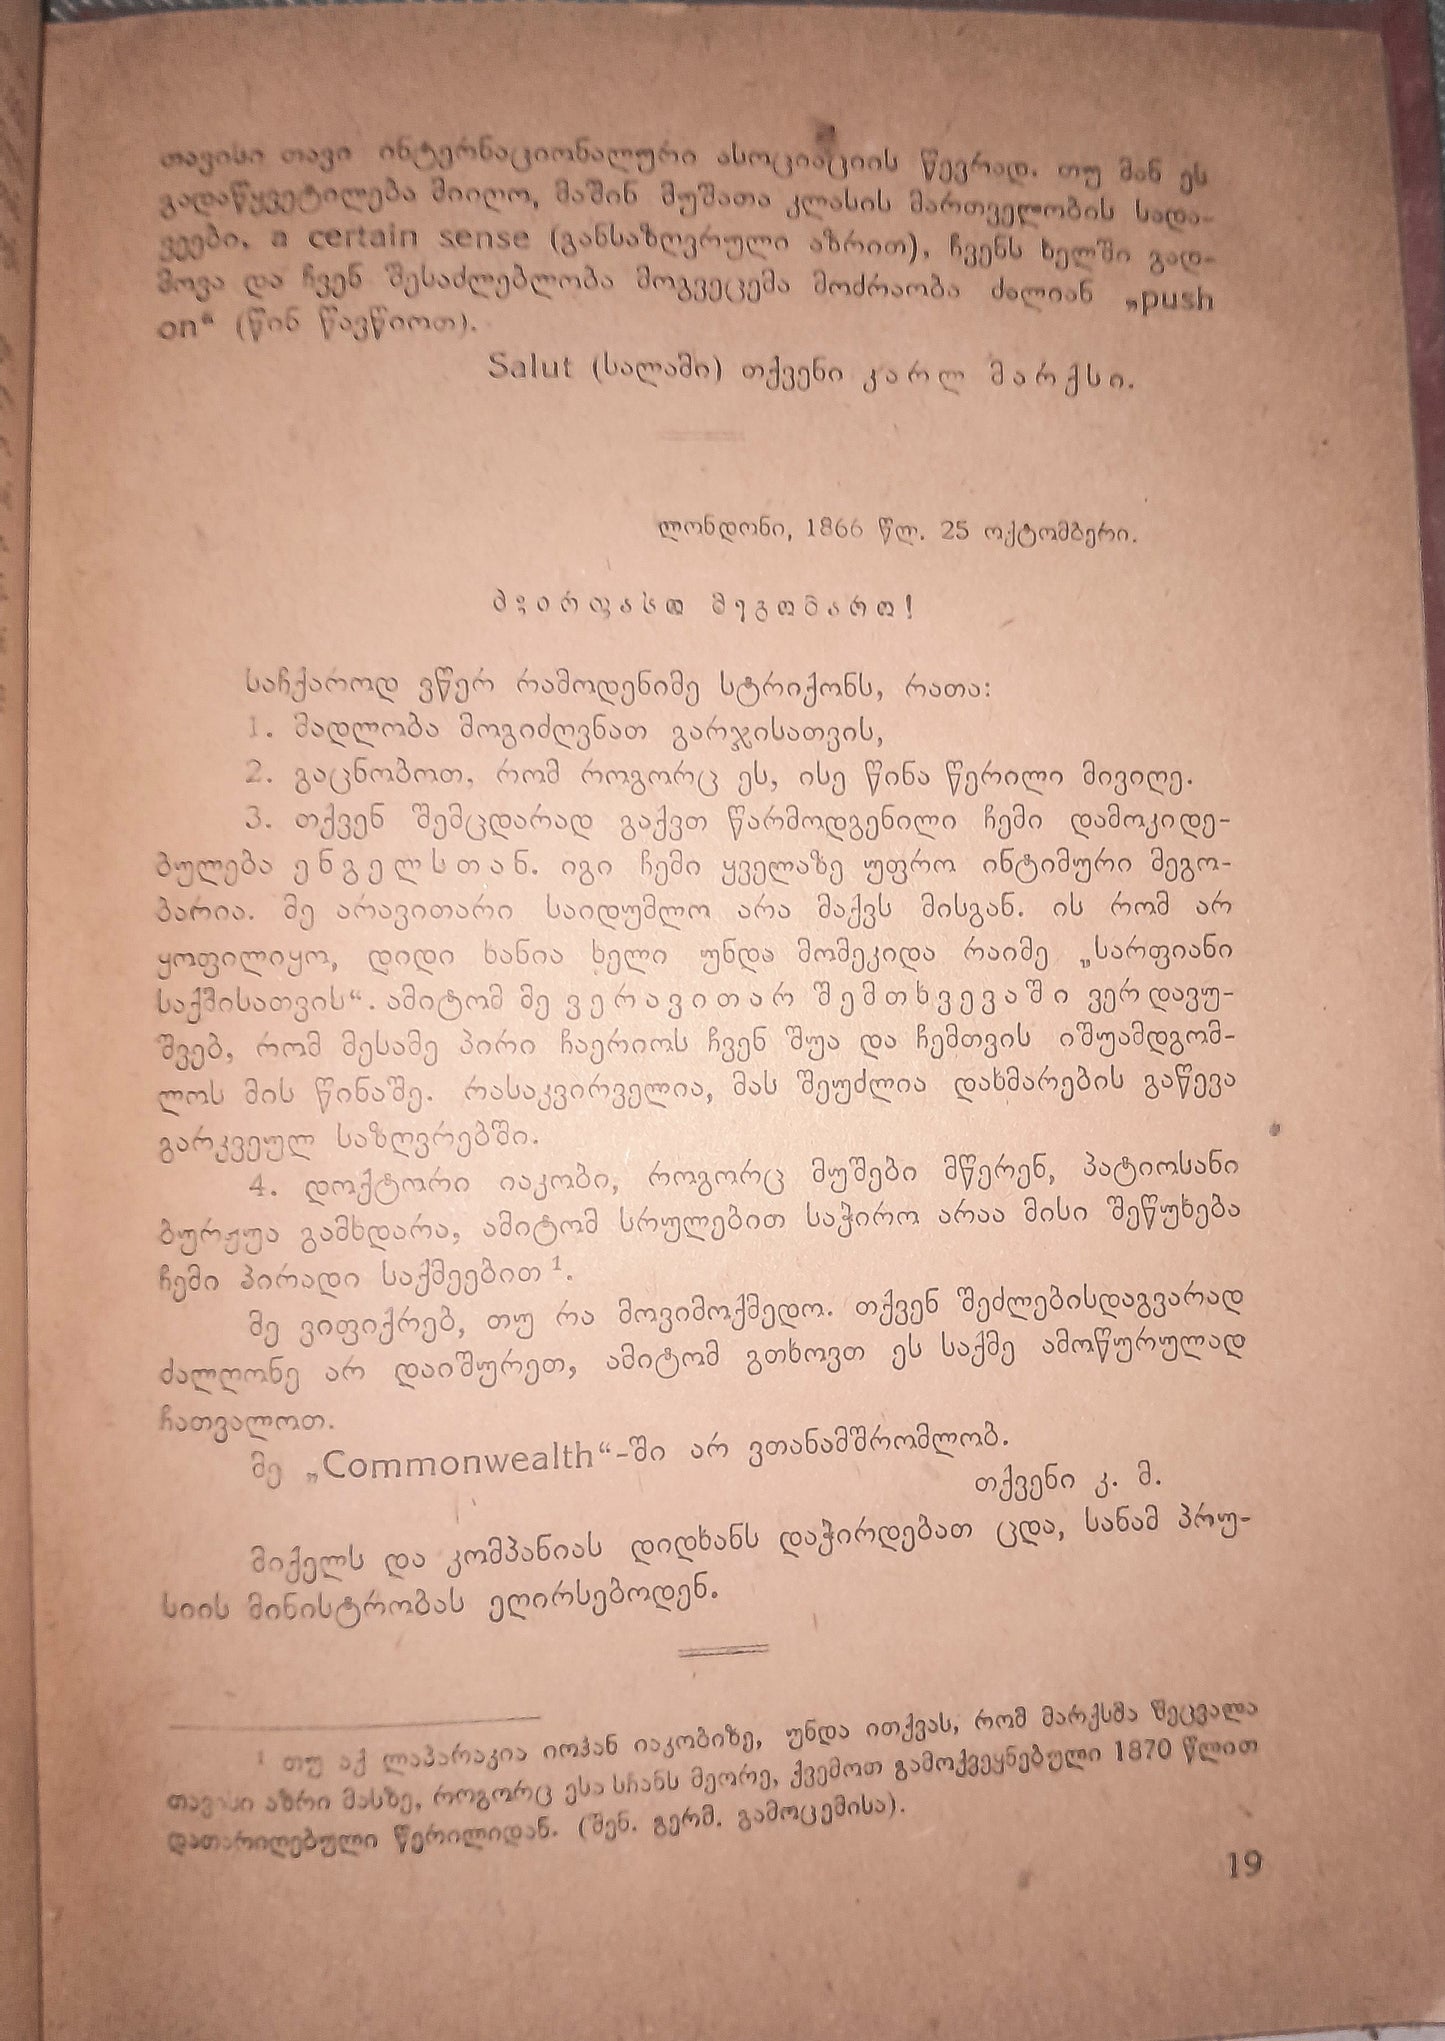 თავისი თავი ინტერნაციონალური ასოციაციის წევრად. თუ მან ეს
გადაწყვეტილება მიიღო, მაშინ მუშათა კლასის მართველობის სადა-
ვეები, a certain sense (განსაზღვრული აზრით), ჩვენს ხელში გად-
მოვა და ჩვენ შესაძლებლობა მოგვეცემა მოძრაობა ძალიან „push
on“ (წინ წავწიოთ).
Salut (სალამი) თქვენი კარლ მარქსი.
ლონდონი, 1866 წლ. 25 ოქტომბერი.
ძვირფასო მეგობარო!
საჩქაროდ ვწერ რამოდენიმე სტრიქონს, რათა:
1. მადლობა მოგიძღვნათ გარჯისათვის,
2. გაცნობოთ, რომ როგორც ეს, ისე წინა წერილი მივიღე.
3. თქვენ შემცდარად გაქვთ წარმოდგენილი ჩემი დამოკიდე-
ბულება ენგელსთან. იგი ჩემი ყველაზე უფრო ინტიმური მეგო-
ბარია. მე არავითარი საიდუმლო არა მაქვს მისგან. ის რომ არ
ყოფილიყო, დიდი ხანია ხელი უნდა მომეკიდა რაიმე „სარფიანი
საქმისათვის“. ამიტომ მე ვერავითარ შემთხვევაში ვერ დავუ-
შვებ, რომ მესამე პირი ჩაერიოს ჩვენ შუა და ჩემთვის იშუამდგომ-
ლოს მის წინაშე. რასაკვირველია, მას შეუძლია დახმარების გაწევა
გარკვეულ საზღვრებში.
4. დოქტორი იაკობი, როგორც მუშები მწერენ, პატიოსანი
ბურჟუა გამხდარა, ამიტომ სრულებით საჭირო არაა მისი შეწუხება
ჩემი პირადი საქმეებით ¹.
მე ვიფიქრებ, თუ რა მოვიმოქმედო. თქვენ შეძლებისდაგვარად
ძალღონე არ დაიშურეთ, ამიტომ გთხოვთ ეს საქმე ამოწურულად
ჩათვალოთ.
მე „Commonwealth“-ში არ ვთანამშრომლობ.
თქვენი კ. მ.
მიქელს და კომპანიას დიდხანს დაჭირდებათ ცდა, სანამ პრუ-
სიის მინისტრობას ეღირსებოდენ.
¹ თუ აქ ლაპარაკია იოჰან იაკობიზე, უნდა ითქვას, რომ მარქსმა შეცვალა
თავისი აზრი მასზე, როგორც ესა სჩანს მეორე, ქვემოთ გამოქვეყნებული 1870 წლით
დათარიღებული წერილიდან. (შენ. გერმ. გამოცემისა).
19